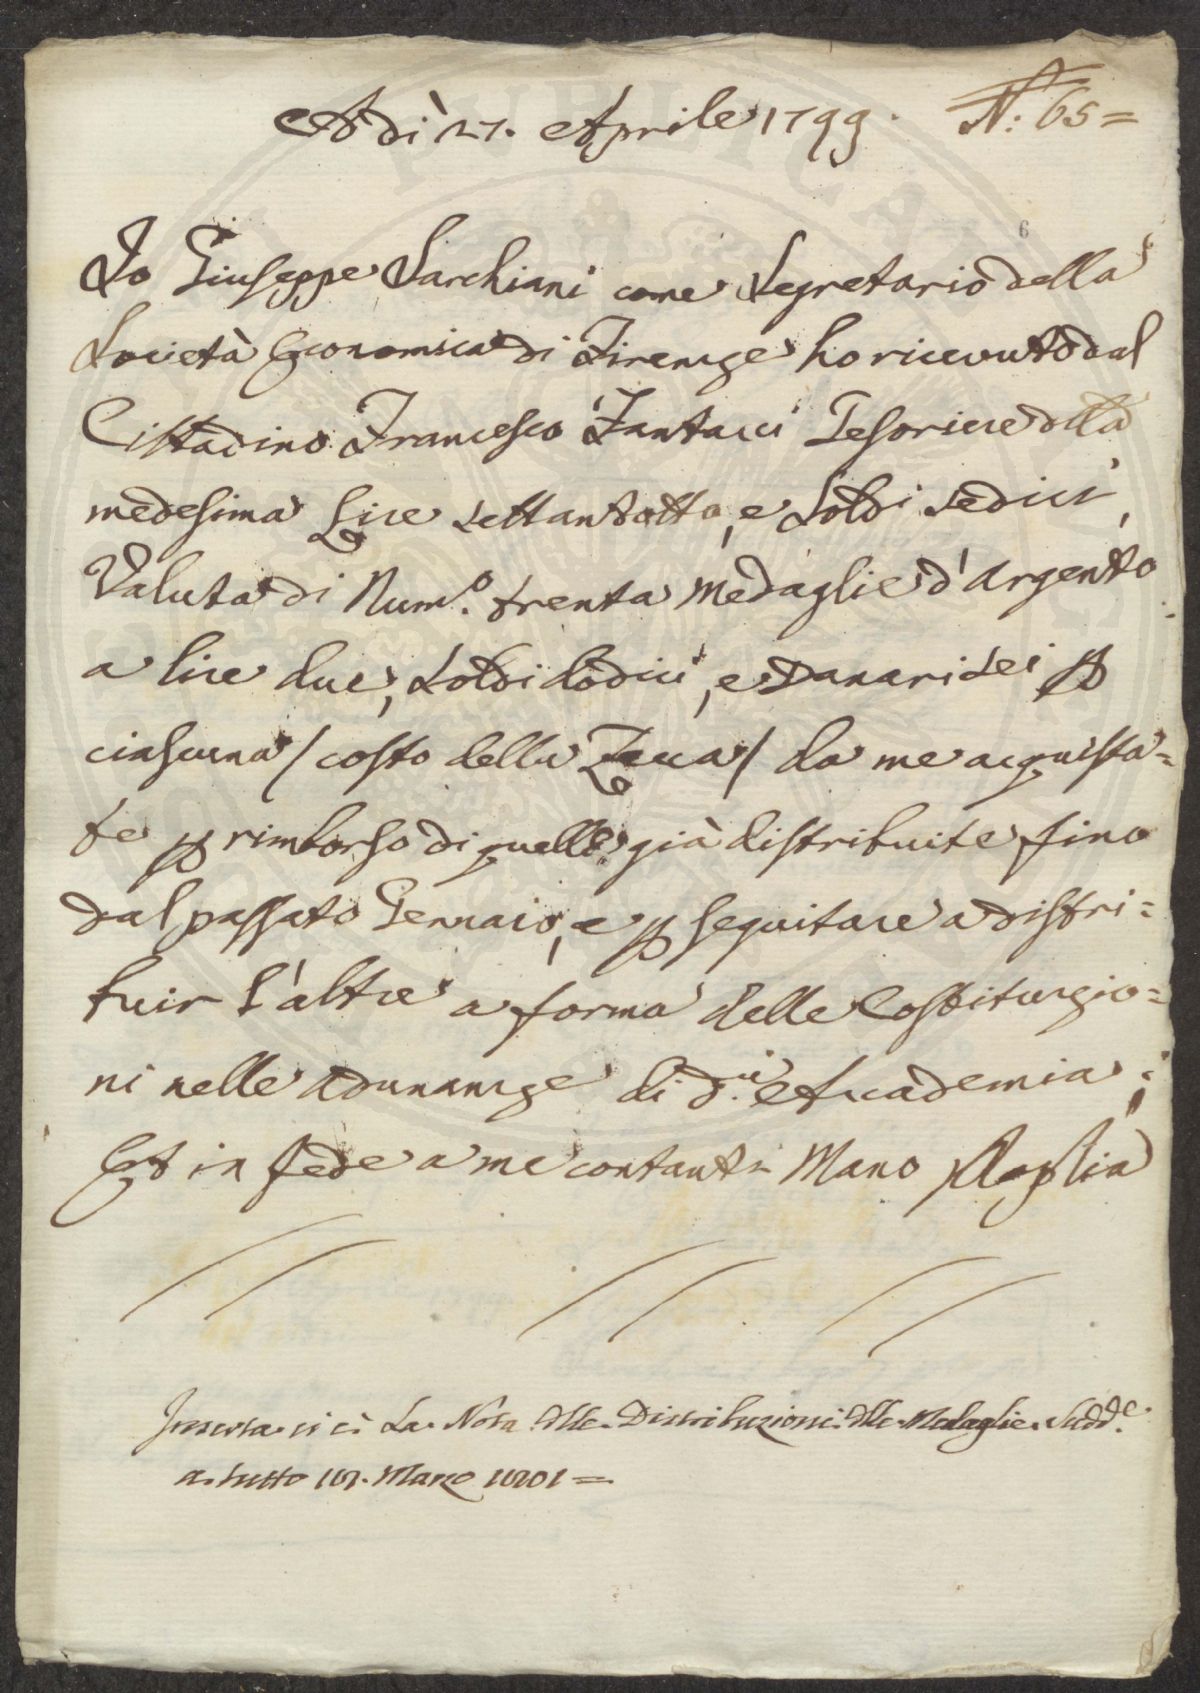 Adì 27. Aprile 1799.
N: 65=
6
Io Giuseppe Sarchiani come Segretario della
Società Economica di Firenze ho ricevuto dal
Cittadino Francesco Fantacci Tesoriere della
medesima Lire settantotto, e soldi sedici,
Valuta di Num.º trenta Medaglie d'Argento
a lire due, soldi dodici, e danari sei p
ciascuna / costo della Zecca / da me acquista=
te p rimborso di quelle già distribuite fino
dal passato Gennaio, e p seguitare a distri=
buir l'altre a forma delle Costituzio=
ni nelle adunanze di d.ª Accademia;
Et in fede a me contanti Mano Ppria
Inserta vi è La Nota delle Distribuzioni delle Medaglie Sudd.e
a tutto Marzo 1801=